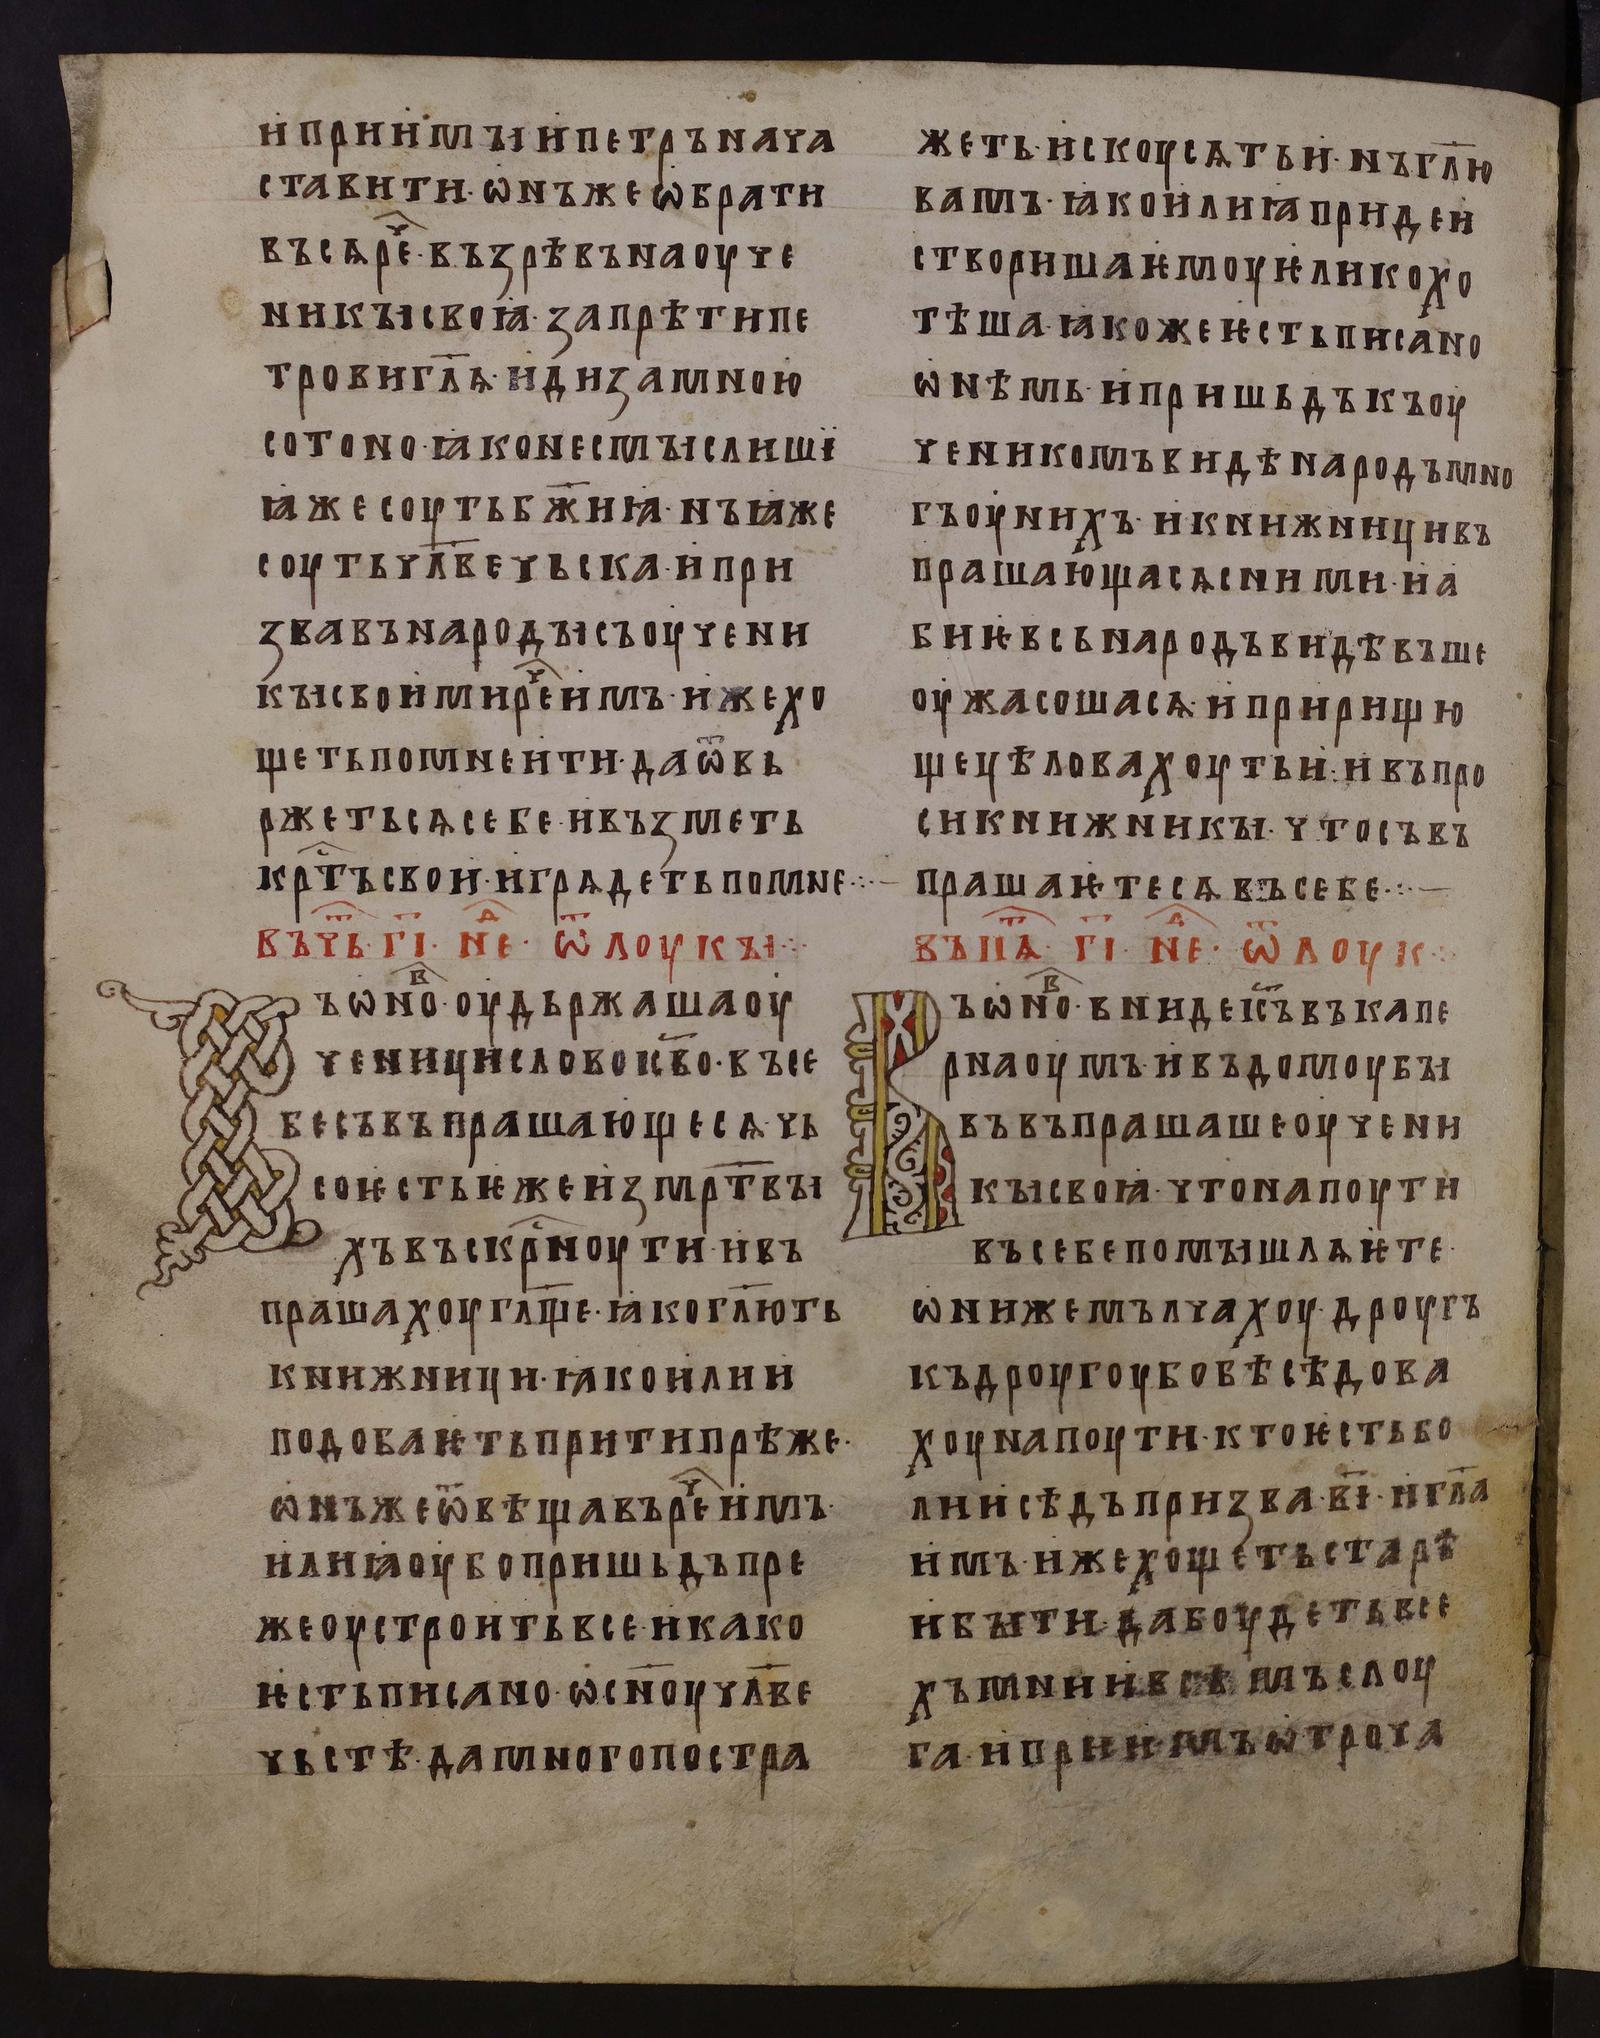 и приимъı и петръ нача
ставити· ѡнъ же ѡбрати
въ сѧ реⷱ҇· възрѣвъ на оуче
никъı своıа· запрѣти пе
трови гл҃ѧ· иди за мною
сотоно· ıако не смъıслиши
ıаже соуть бж҃иıа· нъ ıаже
соуть чл҃вечьска· и при
звавъ народъı съ оучени
къı своими реⷱ҇ имъ· иже хо
щеть по мне ити· да ѿвь
ржеть сѧ себе· и възметь
крⷭ҇тъ свои· и грѧдеть по мне·:·—
въ чьⷮ· г҃ı· неⷣ· ѿ лоукъı·:·
ъ ѡноⷡ· оудьржаша оу
ченици слово іс҃во· въ се
бе съвъпрашающе сѧ· чь
со ѥсть ѥже из мр҃твъı
хъ въскрⷭ҇ноути· и въ
прашахоу гл҃ще· ıако гл҃ють
книжници· ıако илии
подобаѥть прити прѣже·
ѡнъ же ѿвѣщавъ реⷱ҇ имъ·
илиıа оубо пришьдъ пре
же оустроить все· и како
ѥсть писано· ѡ сн҃оу чл҃ве
чьстѣ· да много постра
жеть· искоусѧть и· нъ гл҃ю
вамъ· ıако илиıа приде и
створиша ѥмоу ѥлико хо
тѣша· ıакоже ѥсть писано
ѡ нѣмь· и пришьдъ къ оу
ченикомъ видѣ народъ мно
гъ оу нихъ· и книжници въ
прашающа сѧ с ними· и а
биѥ всь народъ видѣвъше
оужасоша сѧ· и пририщю
ще цѣловахоуть и·: и въпро
си книжникъı· что съвъ
прашаѥте сѧ въ себе·:·—
въ пѧⷮ· г҃ı· неⷣ· ѿ лоук·:·
ъ ѡноⷡ· вниде іс҃ъ въ капе
рнаоумъ· и въ домоу бъı
въ въпрашаше оучени
къı своıа· что на поути
въ себе помъıшлѧѥте·
ѡни же мълчахоу· дроугъ
къ дроугоу бо бѣсѣдова
хоу на поути· кто ѥсть бо
лии· сѣдъ призва· в҃ı· и гл҃а
имъ· иже хощеть старѣ
и бъıти· да боудеть все
хъ мнии и всѣмъ слоу
га· и приимъ ѡтроча